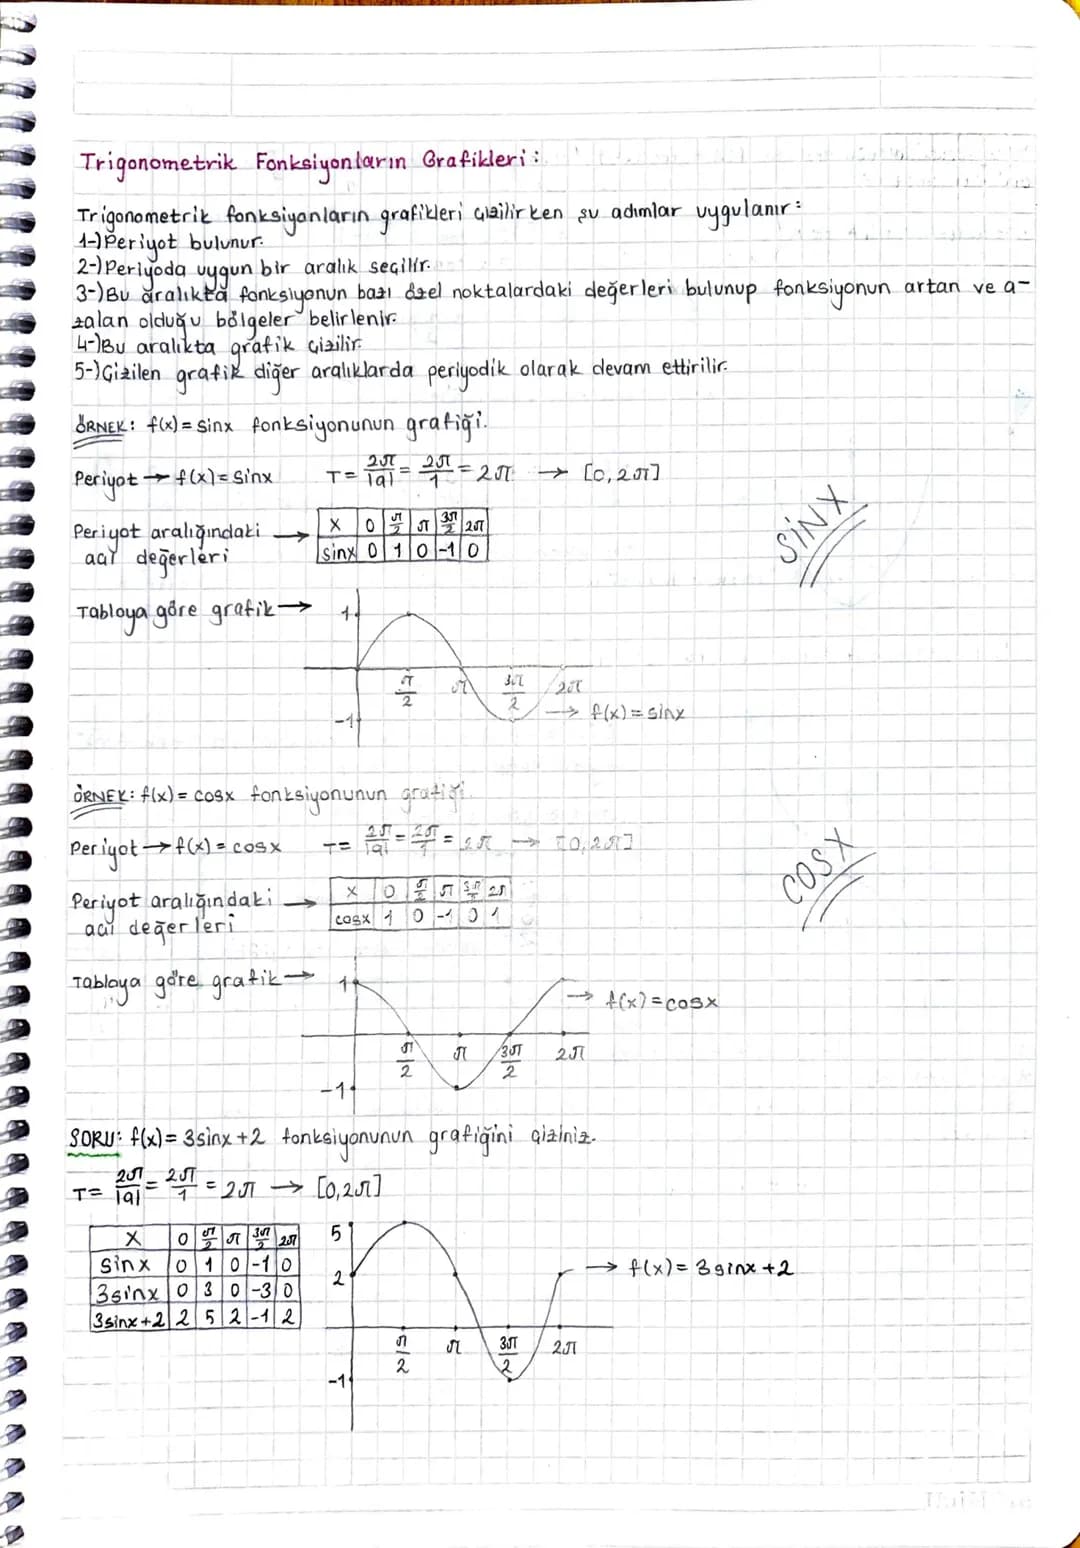 Trigonometrik Fonksiyonların Grafikleri:
Trigonometrik fonksiyonların grafikleri çizilirken şu adımlar uygulanır:
1-)Periyot bulunur.
2-)Periyoda uygun bir aralık seçilir.
3-)Bu aralıkta fonksiyonun bazı özel noktalardaki değerleri bulunup fonksiyonun artan ve a-
zalan olduğu bölgeler belirlenir.
4-)Bu aralıkta grafik çizilir.
5-)Çizilen grafik diğer aralıklarda periyodik olarak devam ettirilir.
ÖRNEK: f(x) = sinx fonksiyonunun grafiği.
Periyot → f(x) = sinx T = 2π/|a| = 2π/1 = 2π → [0,2π]
SİNX
Periyot aralığındaki →
açı değerleri
x 0 π/2 π 3π/2 2π
sinx 0 1 0 -1 0
Tabloya göre grafik →
1
π/2 π 3π/2 2π
-1
→ f(x) = sinx
ÖRNEK: f(x) = cosx fonksiyonunun grafiği.
Periyot → f(x) = cosx T = 2π/|a| = 2π/1 = 2π → [0,2π]
COSX
Periyot aralığındaki →
açı değerleri
x 0 π/2 π 3π/2 2π
cosx 1 0 -1 0 1
Tabloya göre grafik →
1
→ f(x) = cosx
π/2 π 3π/2 2π
-1
SORU: f(x) = 3sinx+2 fonksiyonunun grafiğini çiziniz.
T = 2π/|a| = 2π/1 = 2π → [0,2π]
x 0 π/2 π 3π/2 2π
sinx 0 1 0 -1 0
3sinx 0 3 0 -3 0
3sinx+2 2 5 2 -1 2
5
2
→ f(x) = 3sinx+2
π/2 π 3π/2 2π
-1